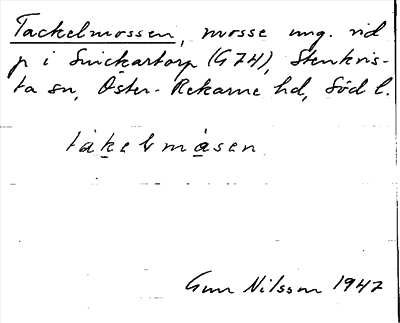 Tackelmossen, mosse ung. vid
p i Snickartorp (G 74), Stenkvis-
ta sn, Öster-Rekarne hd, Söd l.
tàkelmåsen
Gun Nilsson 1947